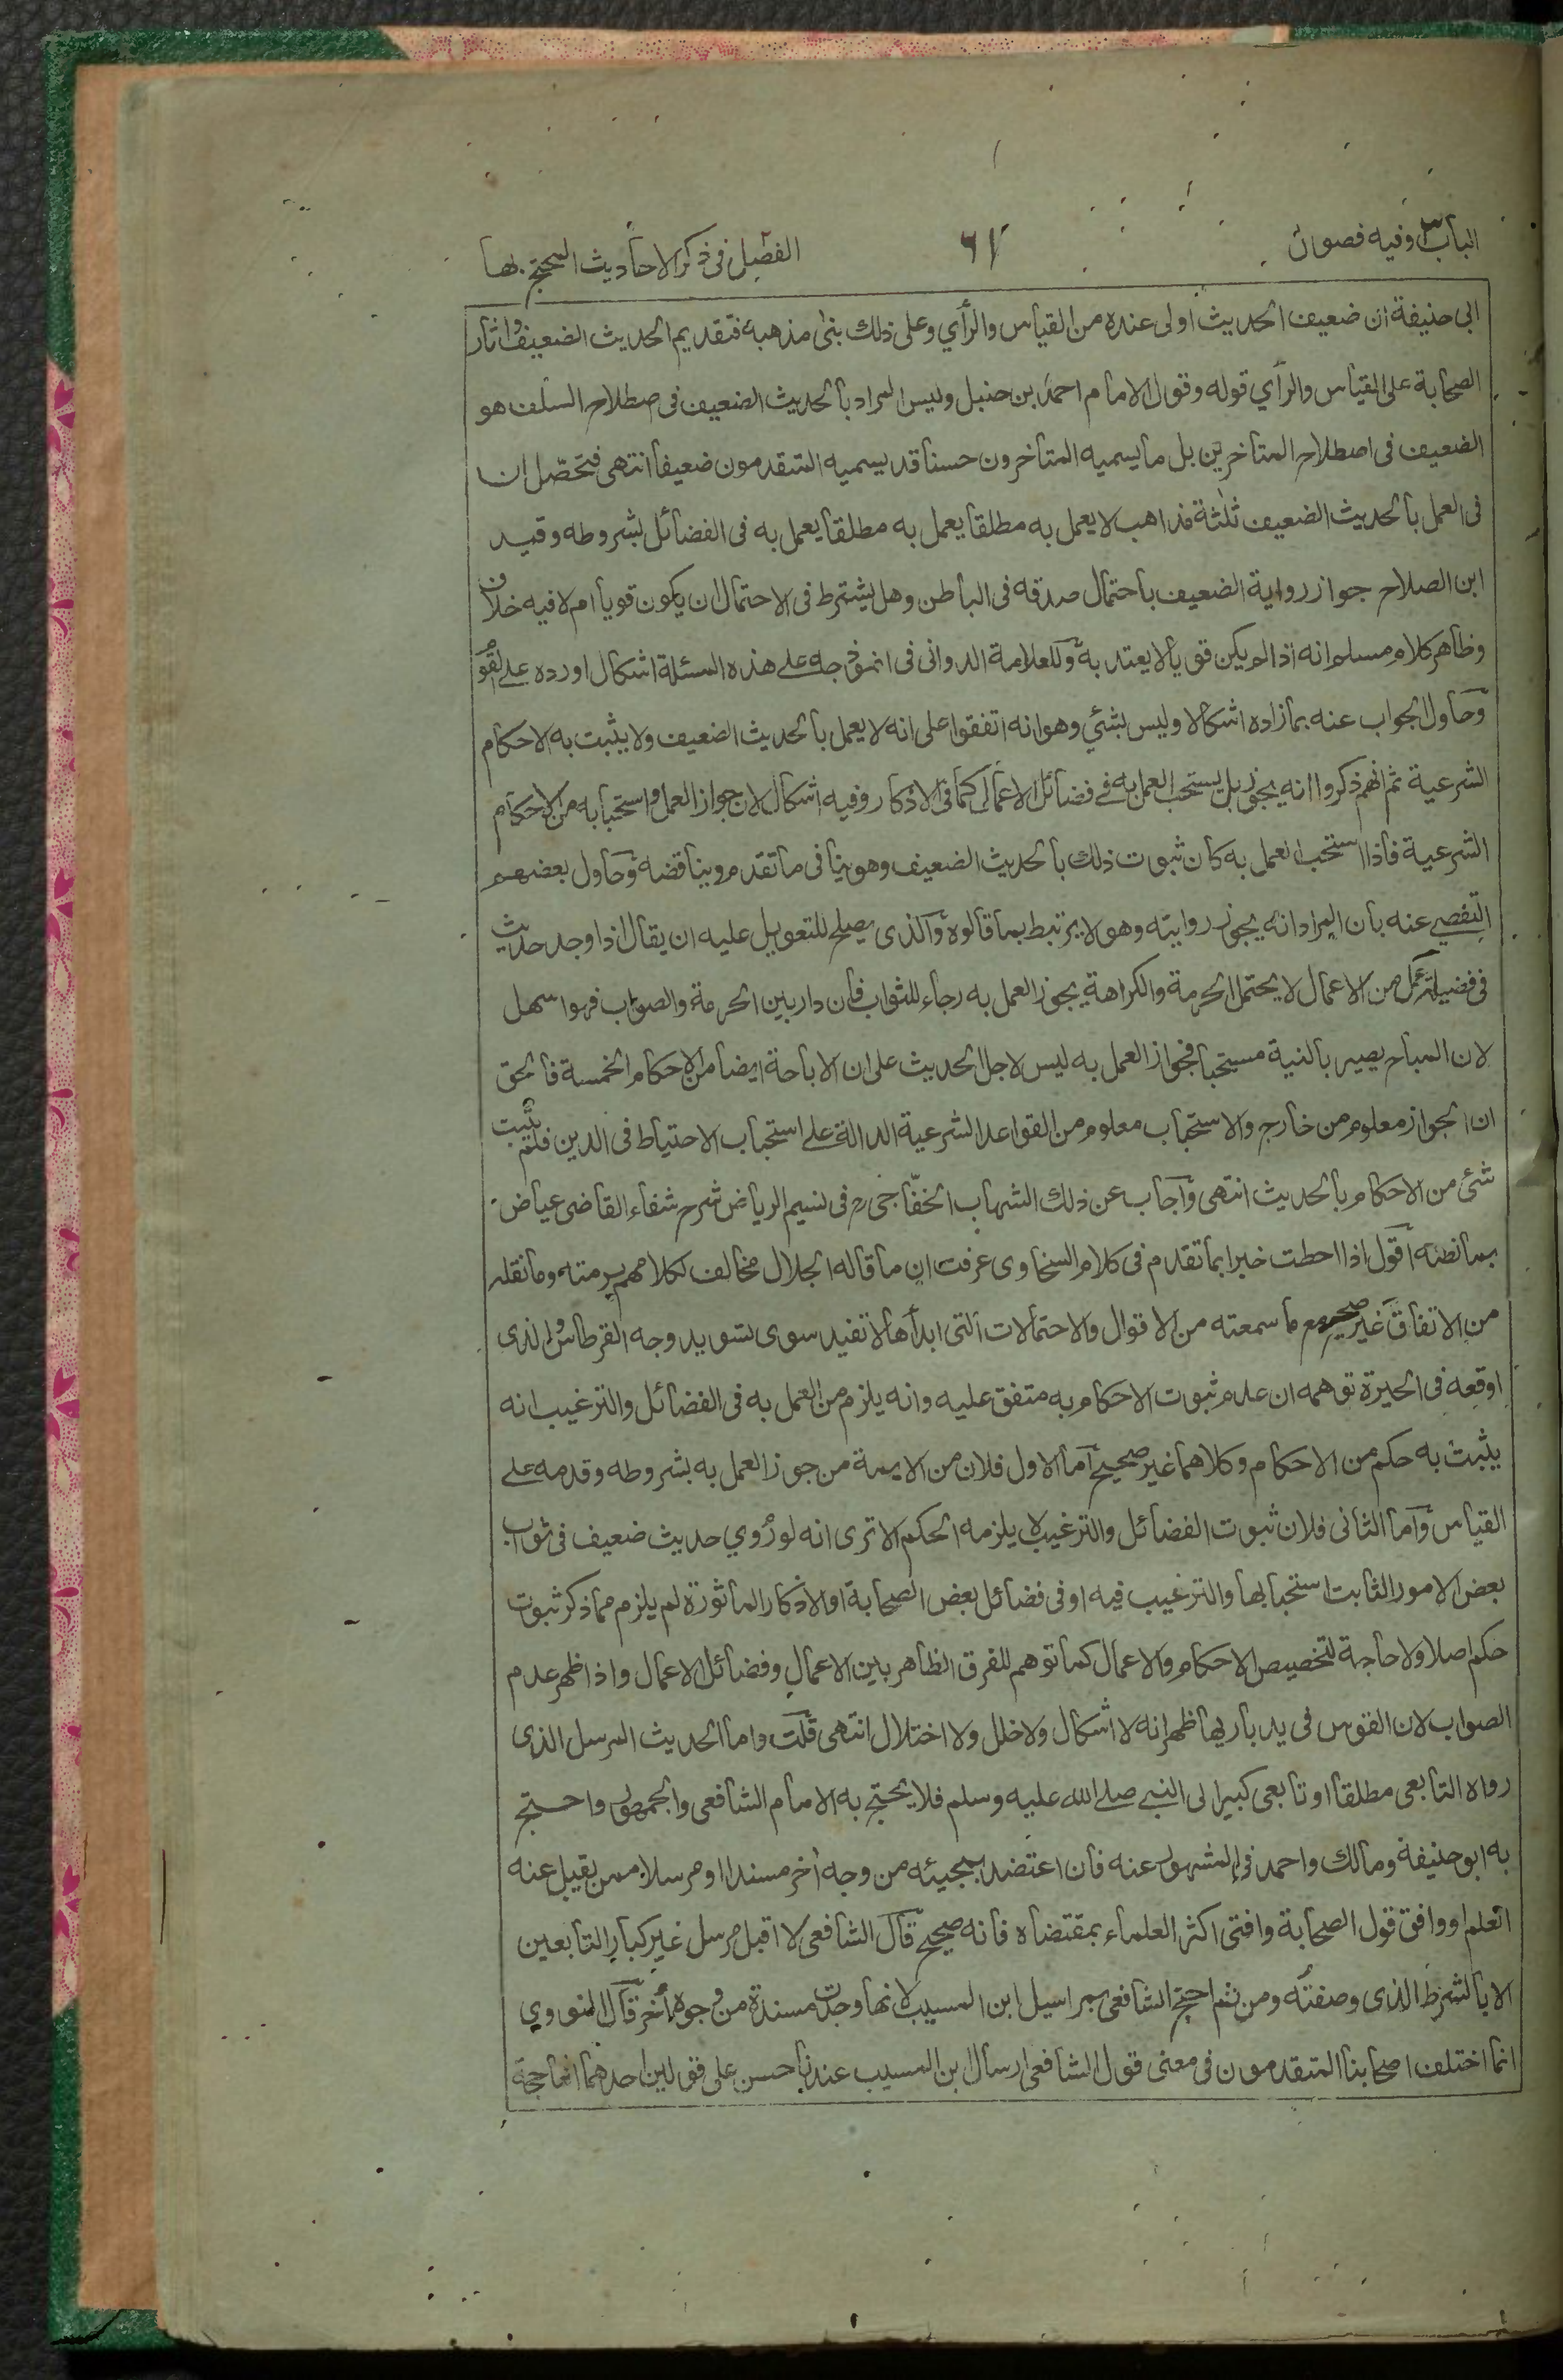 الباب٣ وفيه فصول
٦٧
الفصل٢ فى ذكر الاحاديث المحتج بها
ابى حنيفة ان ضعيف الحديث اولى عنده من القياس والرأي وعلى ذلك بنى مذهبه فتقديم الحديث الضعيف واثار
الصحابة على القياس والرأي قوله وقول الامام احمد بن حنبل وليس المراد بالحديث الضعيف فى اصطلاح السلف هو
الضعيف فى اصطلاح المتاخرين بل ما يسميه المتاخرون حسنا قد يسميه المتقدمون ضعيفا انتهى فتحصّل ان
فى العمل بالحديث الضعيف ثلثة مذاهب لا يعمل به مطلقا يعمل به مطلقا يعمل به فى الفضائل بشروطه وقيد
ابن الصلاح جواز رواية الضعيف باحتمال صدقه فى الباطن وهل يشترط فى الاحتمال ان يكون قويا ام لا فيه خلاف
وظاهر كلام مسلم انه اذا لم يكن قويا لا يعتد به وللعلامة الدوانى فى انموذجه على هذه المسئلة اشكال اورده على القوم
وحاول الجواب عنه بما زاده اشكالا وليس بشئي وهو انه اتفقوا على انه لا يعمل بالحديث الضعيف ولا يثبت به الاحكام
الشرعية ثم انهم ذكروا انه يجوز بل يستحب العمل به فى فضائل الاعمال كما فى الاذكار وفيه اشكال لان جواز العمل واستحبابه من الاحكام
الشرعية فاذا استحب العمل به كان ثبوت ذلك بالحديث الضعيف وهو ينا فى ما تقدم ويناقضه وحاول بعضهم
التفصى عنه بان المراد انه يجوز روايته وهو لا يرتبط بما قالوه والذى يصلح للتعويل عليه ان يقال اذا وجد حديث
فى فضيلة عمل من الاعمال لا يحتمل الحرمة والكراهة يجوز العمل به رجاء للثواب فان دار بين الحرمة والصواب فهو اسهل
لان المباح يصير بالنية مستحبا فجواز العمل به ليس لاجل الحديث على ان الاباحة ايضا من الاحكام الخمسة فالحق
ان الجواز معلوم من خارج والاستحباب معلوم من القواعد الشرعية الدالة على استحباب الاحتياط فى الدين فلم يثبت
شئ من الاحكام بالحديث انتهى وآجاب عن ذلك الشهاب الخفّاجى رح فى نسيم الرياض شرح شفاء القاضى عياض
بما نصّه اقول اذا احطت خبرا بما تقدم فى كلام السخاوى عرفت ان ما قاله الجلال مخالف لكلامهم برمته وما نقله
من الاتفاق غير صحيح مع ما سمعته من الاقوال والاحتمالات التى ابداها لا تفيد سوى تسويد وجه القرطاس والذى
اوقعه فى الحيرة توهمه ان عدم ثبوت الاحكام به متفق عليه وانه يلزم من العمل به فى الفضائل والترغيب انه
يثبت به حكم من الاحكام وكلاهما غير صحيح آما الاول فلان من الايمة من جوز العمل به بشروطه وقدمه على
القياس وآما الثانى فلان ثبوت الفضائل والترغيب لا يلزمه الحكم الا ترى انه لو رُوي حديث ضعيف فى ثواب
بعض الامور الثابت استحبابها والترغيب فيه او فى فضائل بعض الصحابة او الاذكار المأثورة لم يلزم مما ذكر ثبوت
حكم اصلا ولا حاجة لتخصيص الاحكام والاعمال كما توهم للفرق الظاهر بين الاعمال وفضائل الاعمال واذا ظهر عدم
الصواب لان القوس فى يد باريها ظهر انه لا اشكال ولا خلل ولا اختلال انتهى قلت واما الحديث المرسل الذى
رواه التابعى مطلقا او تابعى كبير الى النبى صلى الله عليه وسلم فلا يحتج به الامام الشافعى والجمهور واحتج
به ابو حنيفة ومالك واحمد فى المشهور عنه فان اعتضد بمجيئه من وجه أخر مسندا او مرسلا ممن يقبل عنه
العلم او وافق قول الصحابة وافتى اكثر العلماء بمقتضاه فانه صحيح قال الشافعى لا اقبل مرسل غير كبار التابعين
الا بالشرط الذى وصفته ومن ثم احتج الشافعى بمراسيل ابن المسيب لانها وجدت مسندة من وجوه أخر قال النووي
انما اختلف اصحابنا المتقدمون فى معنى قول الشافعى ارسال ابن المسيب عندنا حسن على قولين احدهما انها حجة